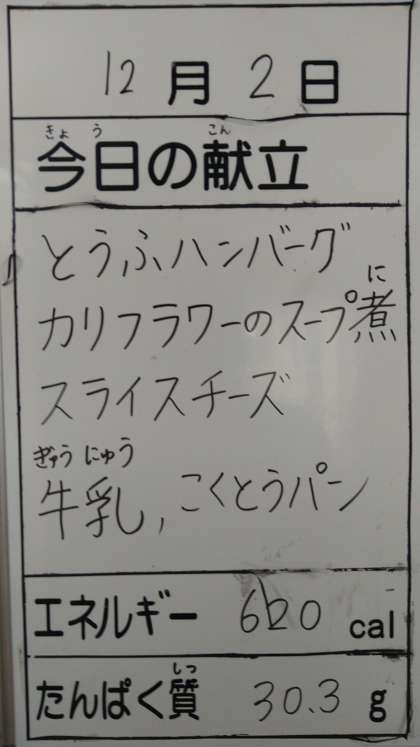 12月2日
きょう こん
今日の献立
とうふハンバーグ
に
カリフラワーのスープ煮
スライスチーズ
ぎゅうにゅう
牛乳, こくとうパン
エネルギー 620 cal
しつ
たんぱく質 30.3 g